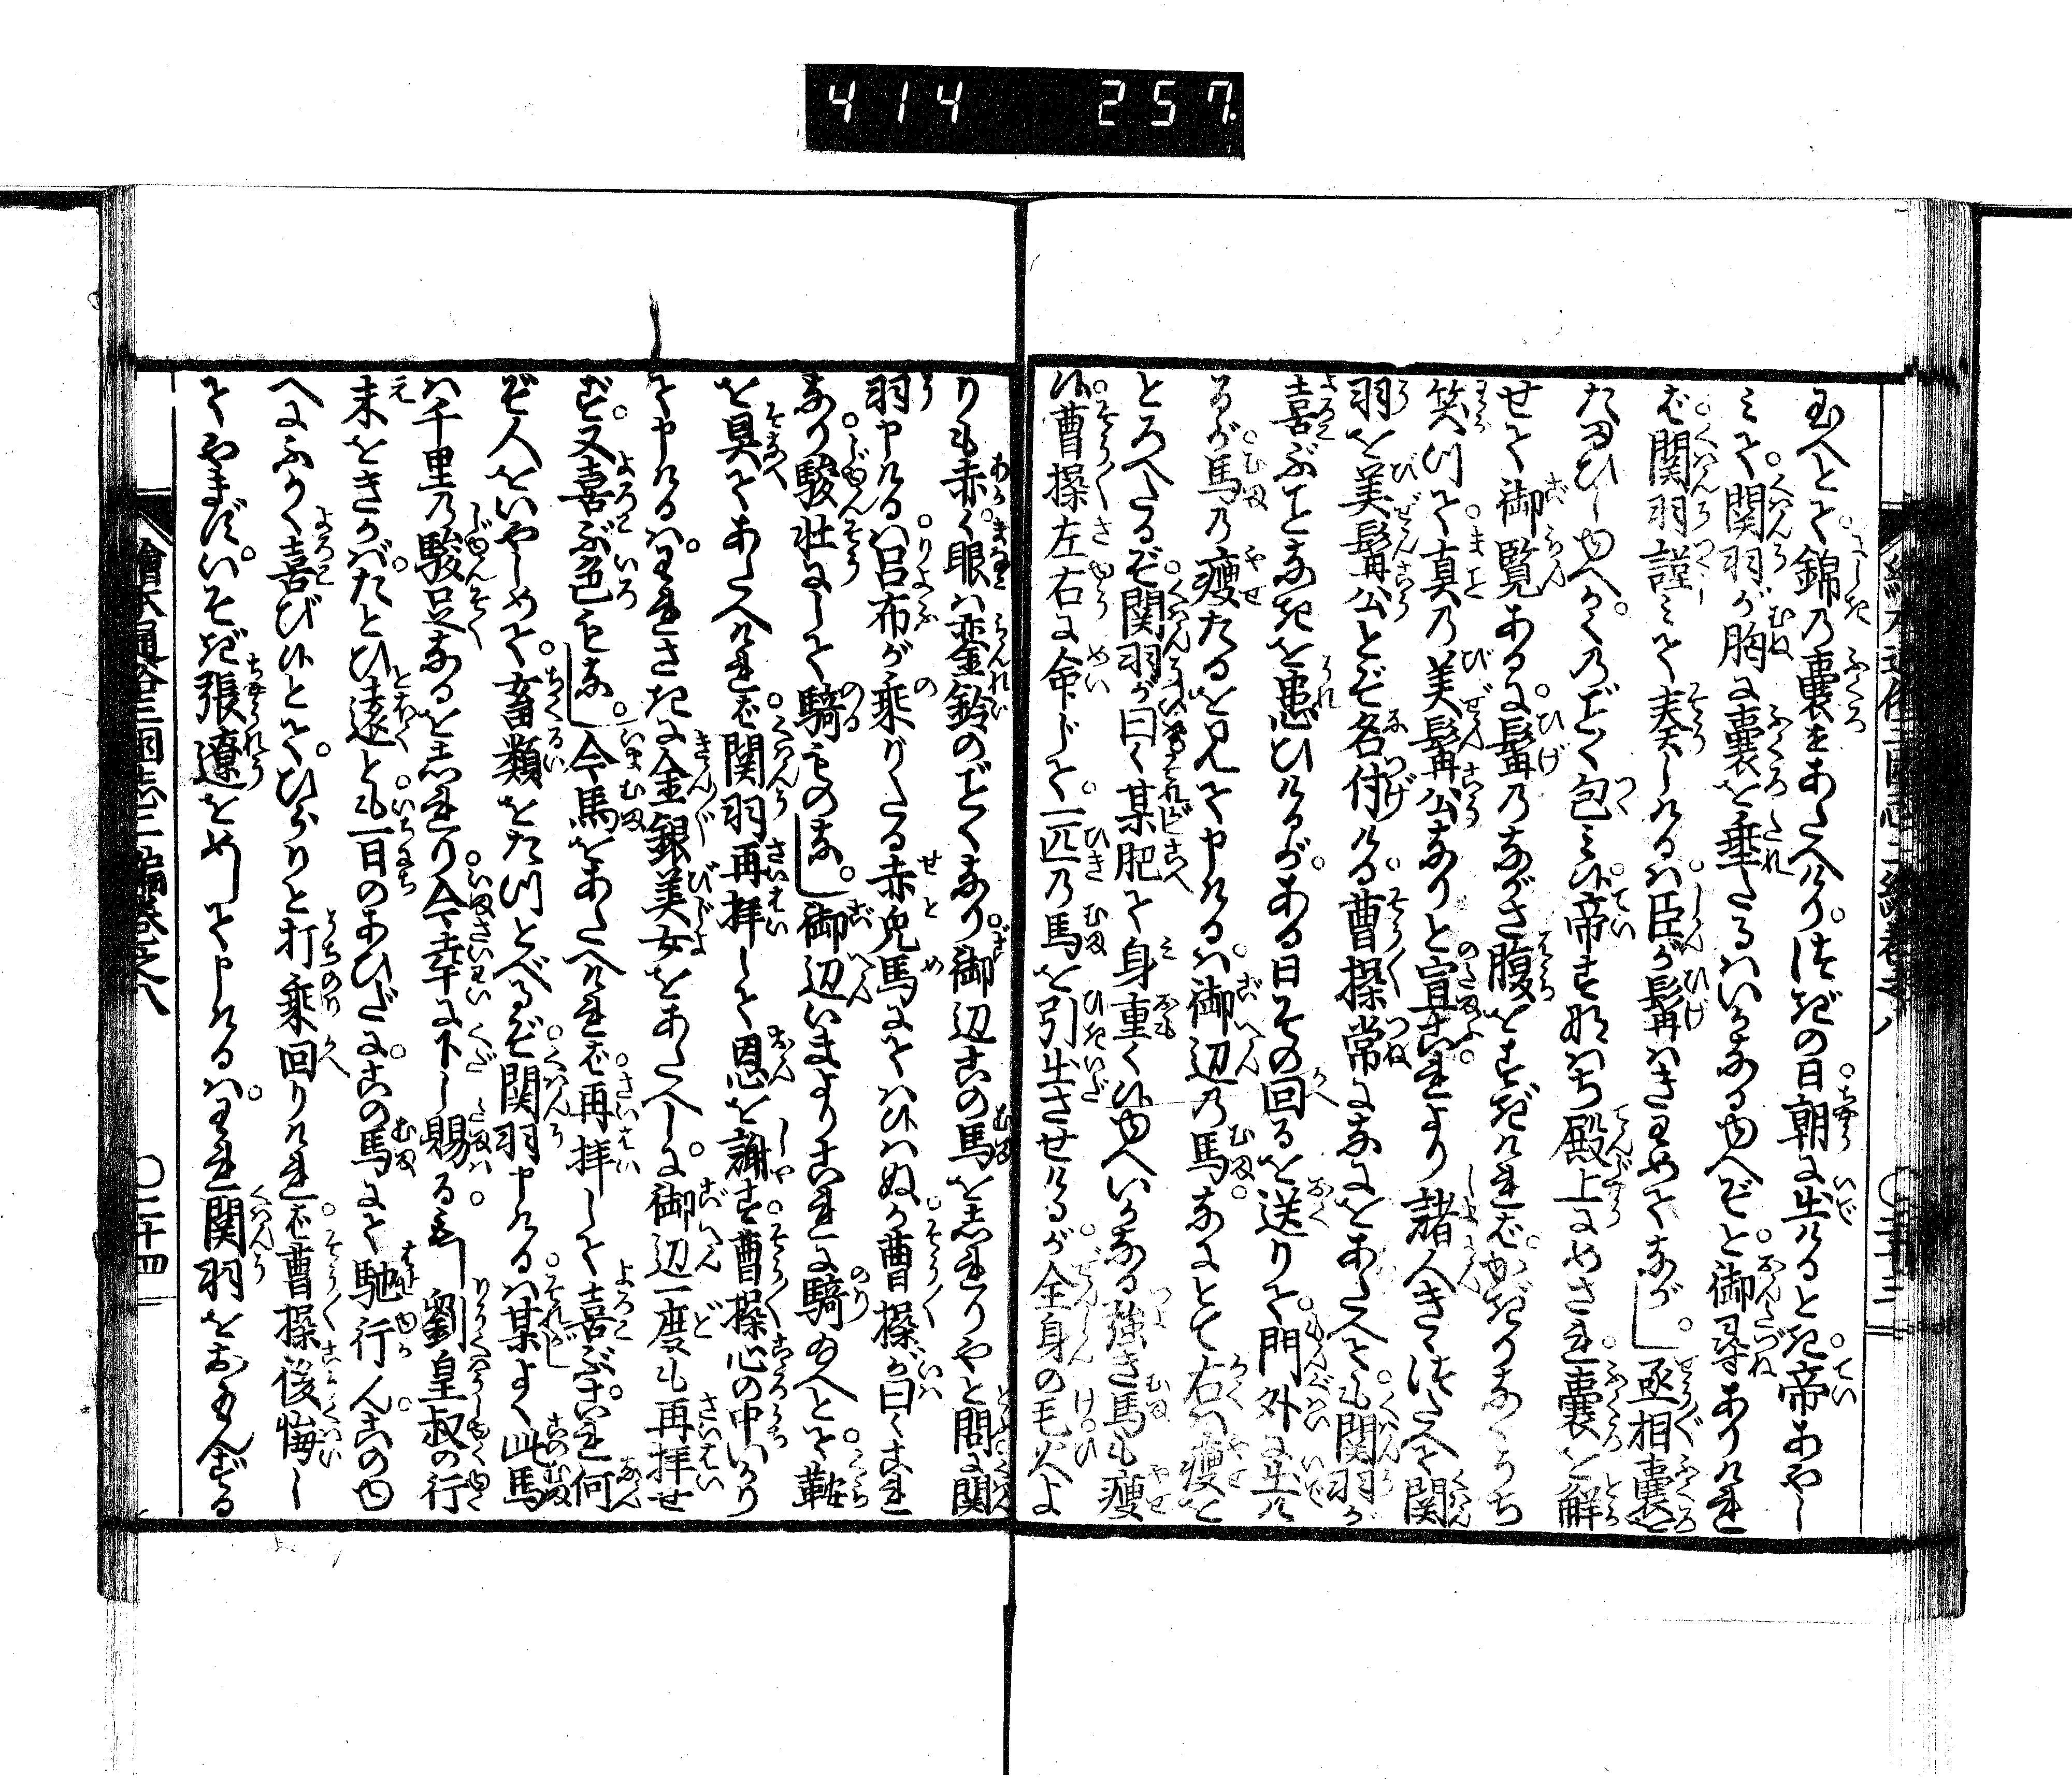 414 257.
玉へとて錦の嚢をあたへけり次の日朝に出けるとき帝あやし
みて関羽が胸に嚢を垂たるはいかなるゆへぞと御尋ありけれ
ば関羽謹みて奏しけるは臣が髯はきはめてながし丞相嚢を
たまひしゆへかくのごとく包み候帝すなはち殿上にめされ嚢を解
せて御覧あるに髯のながさ腹をすぎければかぎりなくうち
笑ひて真の美髯公なりと宣これより諸人きゝつたへて関
羽を美髯公とぞ名付ける曹操常になにをあたへても関羽が
喜ぶことなきを患ひけるがある日その回るを送りて門外に出け
るが馬の痩たるを見て申けるは御辺の馬なにとて右く痩お
とろへたるぞ関羽が曰く某肥て身重く候ゆへいかなる強き馬も痩
候曹操左右に命じて一匹の馬を引出させけるが全身の毛火よ
りも赤く眼は鑾鈴のごとくなり御辺この馬をしれりやと問に関
羽申けるは呂布が乗がたる赤兎馬にては候はぬか曹操が曰くこれ
なり駿壮にして騎ものなし御辺いまよりこれに騎玉へとて鞍
を具てあたへければ関羽再拝して恩を謝す曹操心の中いかり
て申けるはわれさきに金銀美女をあたへしに御辺一度も再拝せ
ず又喜ぶ色もなし今馬をあたへければ再拝して喜ぶこれ何
ぞ人をいやしめて畜類をたつとべるぞ関羽申けるは某よく此馬
は千里の駿足なるをしれり今幸に下し賜るもし劉皇叔の行
末をきかばたとひ遠とも一日のあひだにこの馬にて馳行んこのゆ
へにふかく喜び候とてひらりと打乗回りければ曹操後悔し
てやまずいそぎ張遼をめして申けるはわれ関羽をおもんずる
絵本通俗三国志二編巻之八
〇二十三
繪本通俗三国志二編巻之八
〇二十四